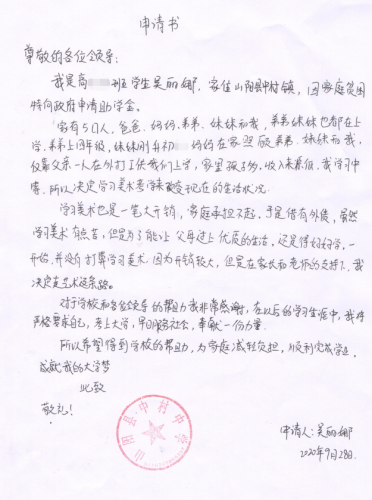 申请书
尊敬的各位领导:
我是高 班学生吴丽娜,家住山阳县中村镇,因家庭贫困
特向政府申请助学金。
家有5口人,爸爸、妈妈、弟弟、妹妹和我,弟弟妹妹也都在上
学,弟弟上四年级,妹妹刚升初 妈妈在家照顾弟弟、妹妹而我,
仅靠父亲一人在外打工供我们上学,家里孩子多,收入来源低,我学习中
等,所以决定学习美术要学来改变现在的生活状况。
学习美术也是一笔大开销,家庭承担不起,于是借有外债,虽然
学习美术有点苦,但是为了能让父母过上优质的生活,还是得好好学,一
开始,并没有打算学习美术,因为开销较大,但是在家长和老师的支持下,我
决定走艺术这条路。
对于学校和各位领导的帮助我非常感谢,在以后的学习生涯中,我将
严格要求自己,考上大学,早日服务社会,奉献一份力量。
所以希望得到学校的帮助,为家庭减轻负担,顺利完成学业,
成就我的大学梦
此致
敬礼!
山阳县中村中学
申请人:吴丽娜
2020年9月28日.